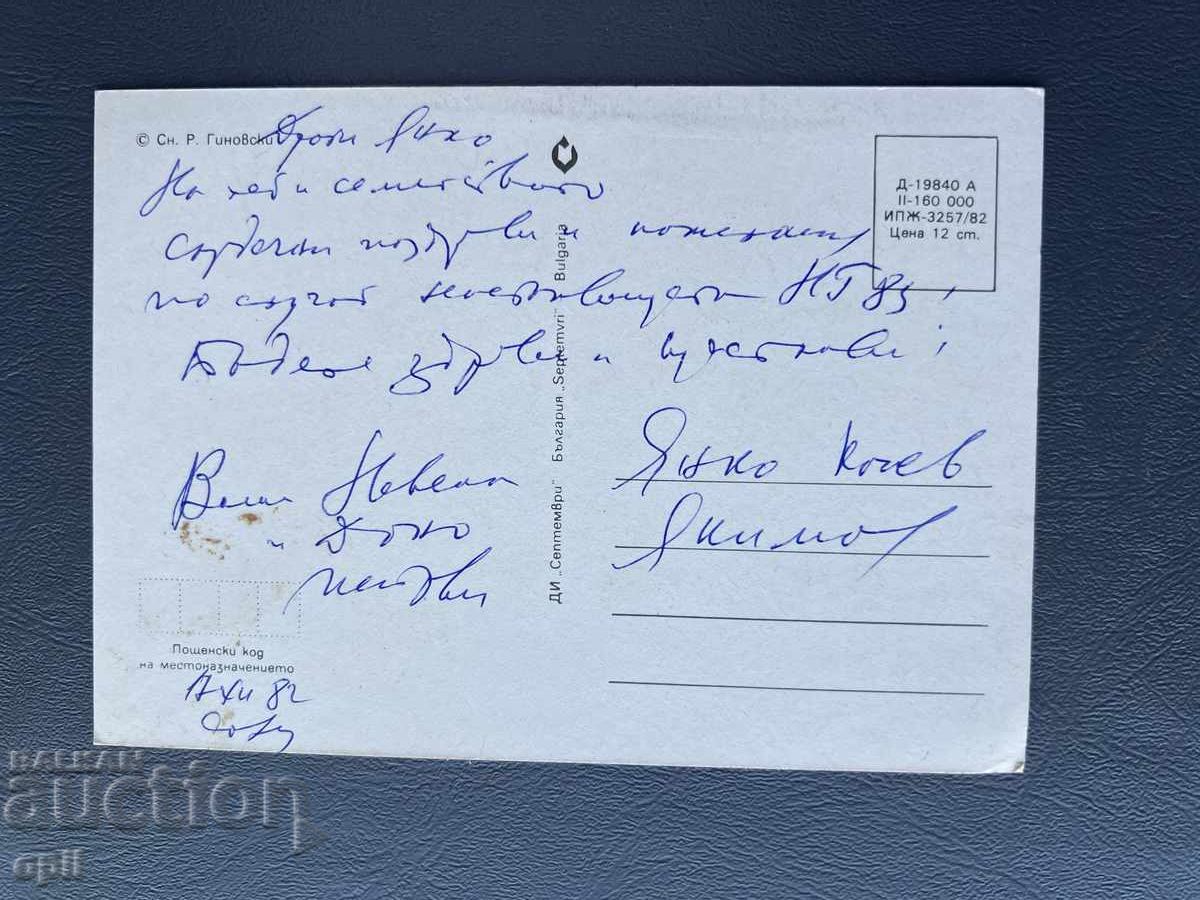 © Сн. Р. Гиновски
Драги Янко
На теб и семейството
сърдечни поздрави и пожелания
по случай настъпващата НГ 83,
Бъдете здрави и щастливи!
Ваши Невена
и Доко
Янко Кочев
Якимов
Д-19840 А
II-160 000
ИПЖ-3257/82
Цена 12 ст.
ДИ „Септември" България „Septemvri" Bulgaria
Пощенски код
на местоназначението
XII 82
BALKAN
auction
opli